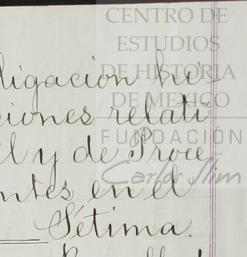 CENTRO DE
ESTUDIOS
DE HISTORIA
DE MEXICO
FUNDACIÓN
Carlos Slim
ligacion hi-
ciones relati
l y de Proce
ntes en el
Sétima.